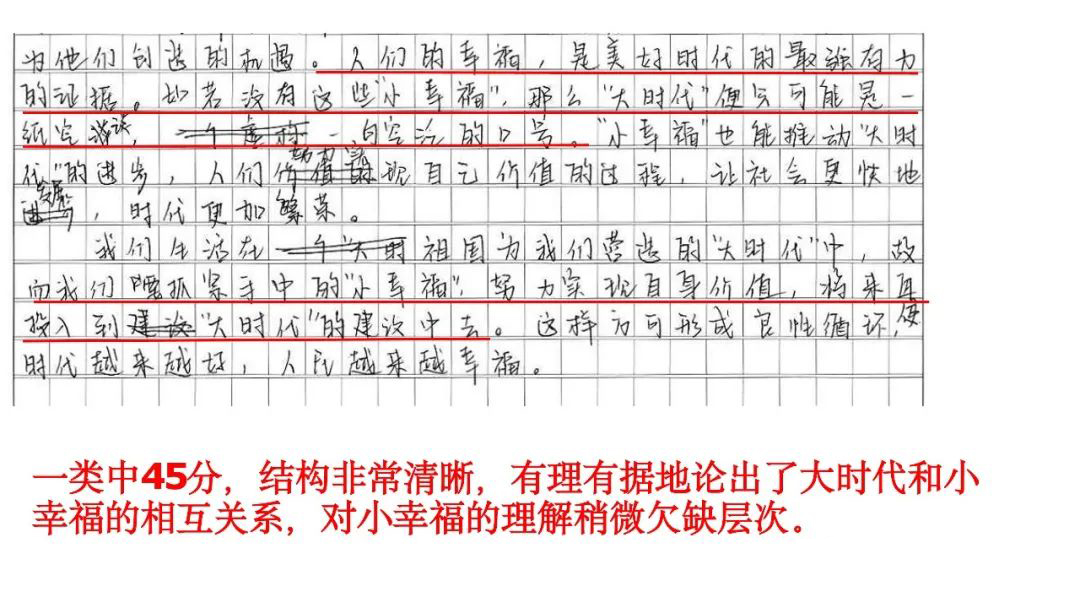 为他们创造的机遇。人们的幸福，是美好时代的最强有力
的证据。如若没有这些“小幸福”，那么“大时代”便只可能是一
纸空谈，一句空洞的口号。“小幸福”也能推动“大时
代”的进步，人们努力实现自己价值的过程，让社会更快地
发展，时代更加繁荣。
我们生活在祖国为我们营造的“大时代”中，故
而我们要抓紧手中的“小幸福”，努力实现自身价值，将来再
投入到“大时代”的建设中去。这样方可形成良性循环，使
时代越来越好，人民越来越幸福。
一类中45分，结构非常清晰，有理有据地论出了大时代和小
幸福的相互关系，对小幸福的理解稍微欠缺层次。